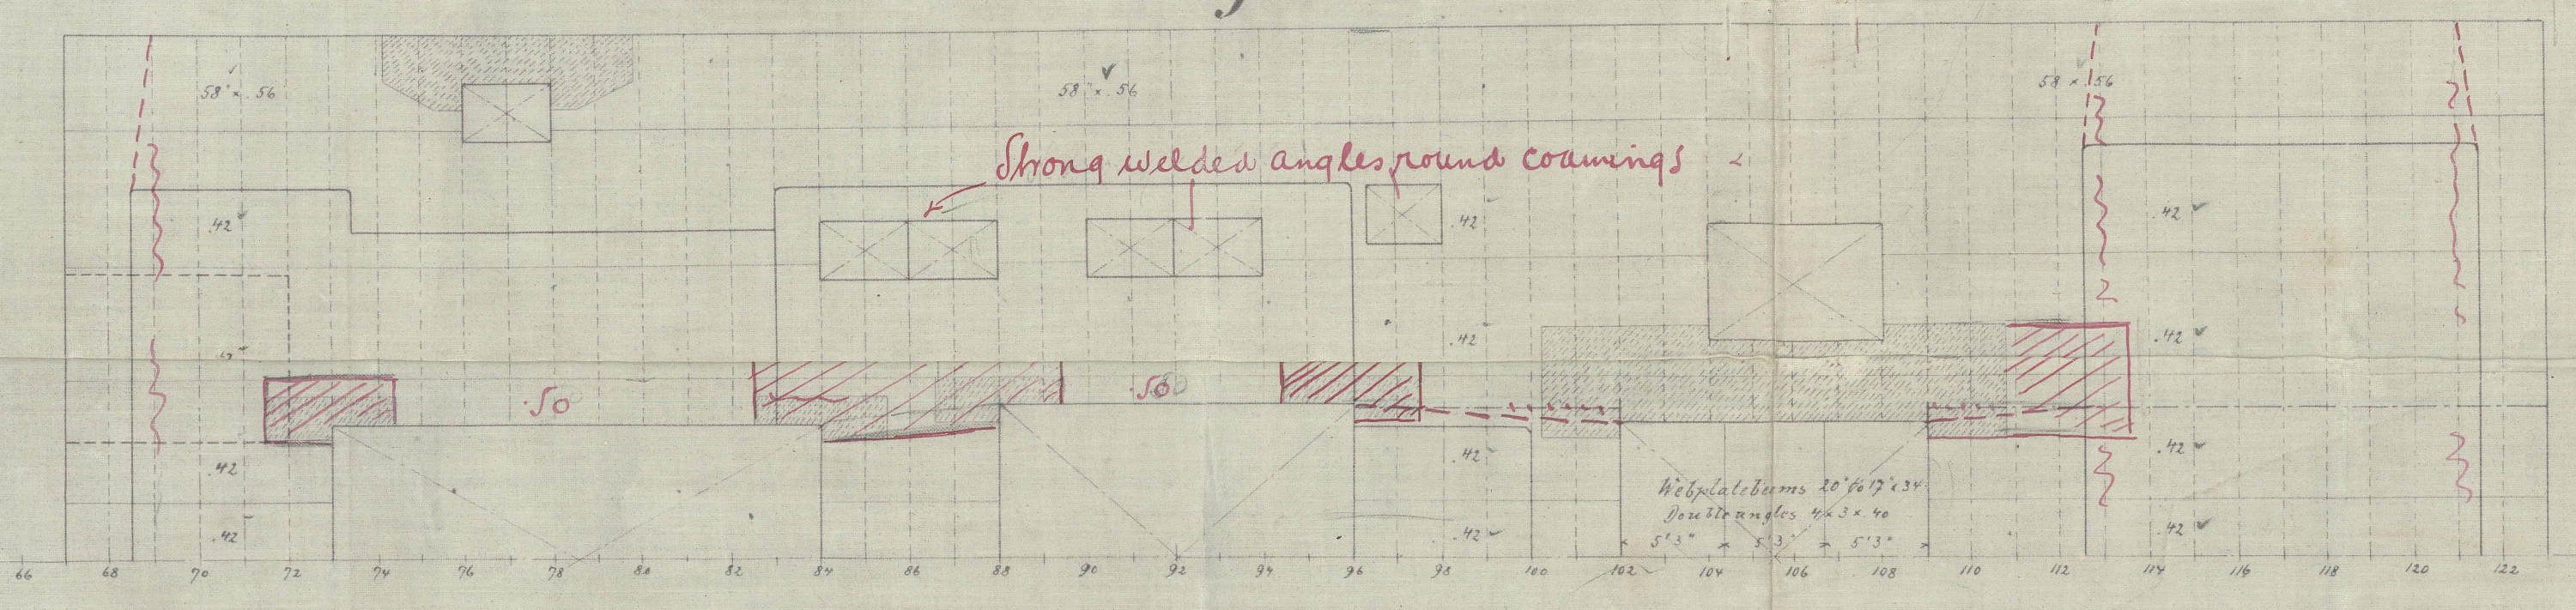 58" × .56
58" × .56
58 × .56
Strong welded angles round coamings
.42
.42
.42
.42
.42
.42
.50
.50
.42
.42
.42
Webplatebeams 20" to 17" × 34
Double angles 4 × 3 × .40
.42
.42
.42
5'3" 5'3" 5'3"
66 68 70 72 74 76 78 80 82 84 86 88 90 92 94 96 98 100 102 104 106 108 110 112 114 116 118 120 122